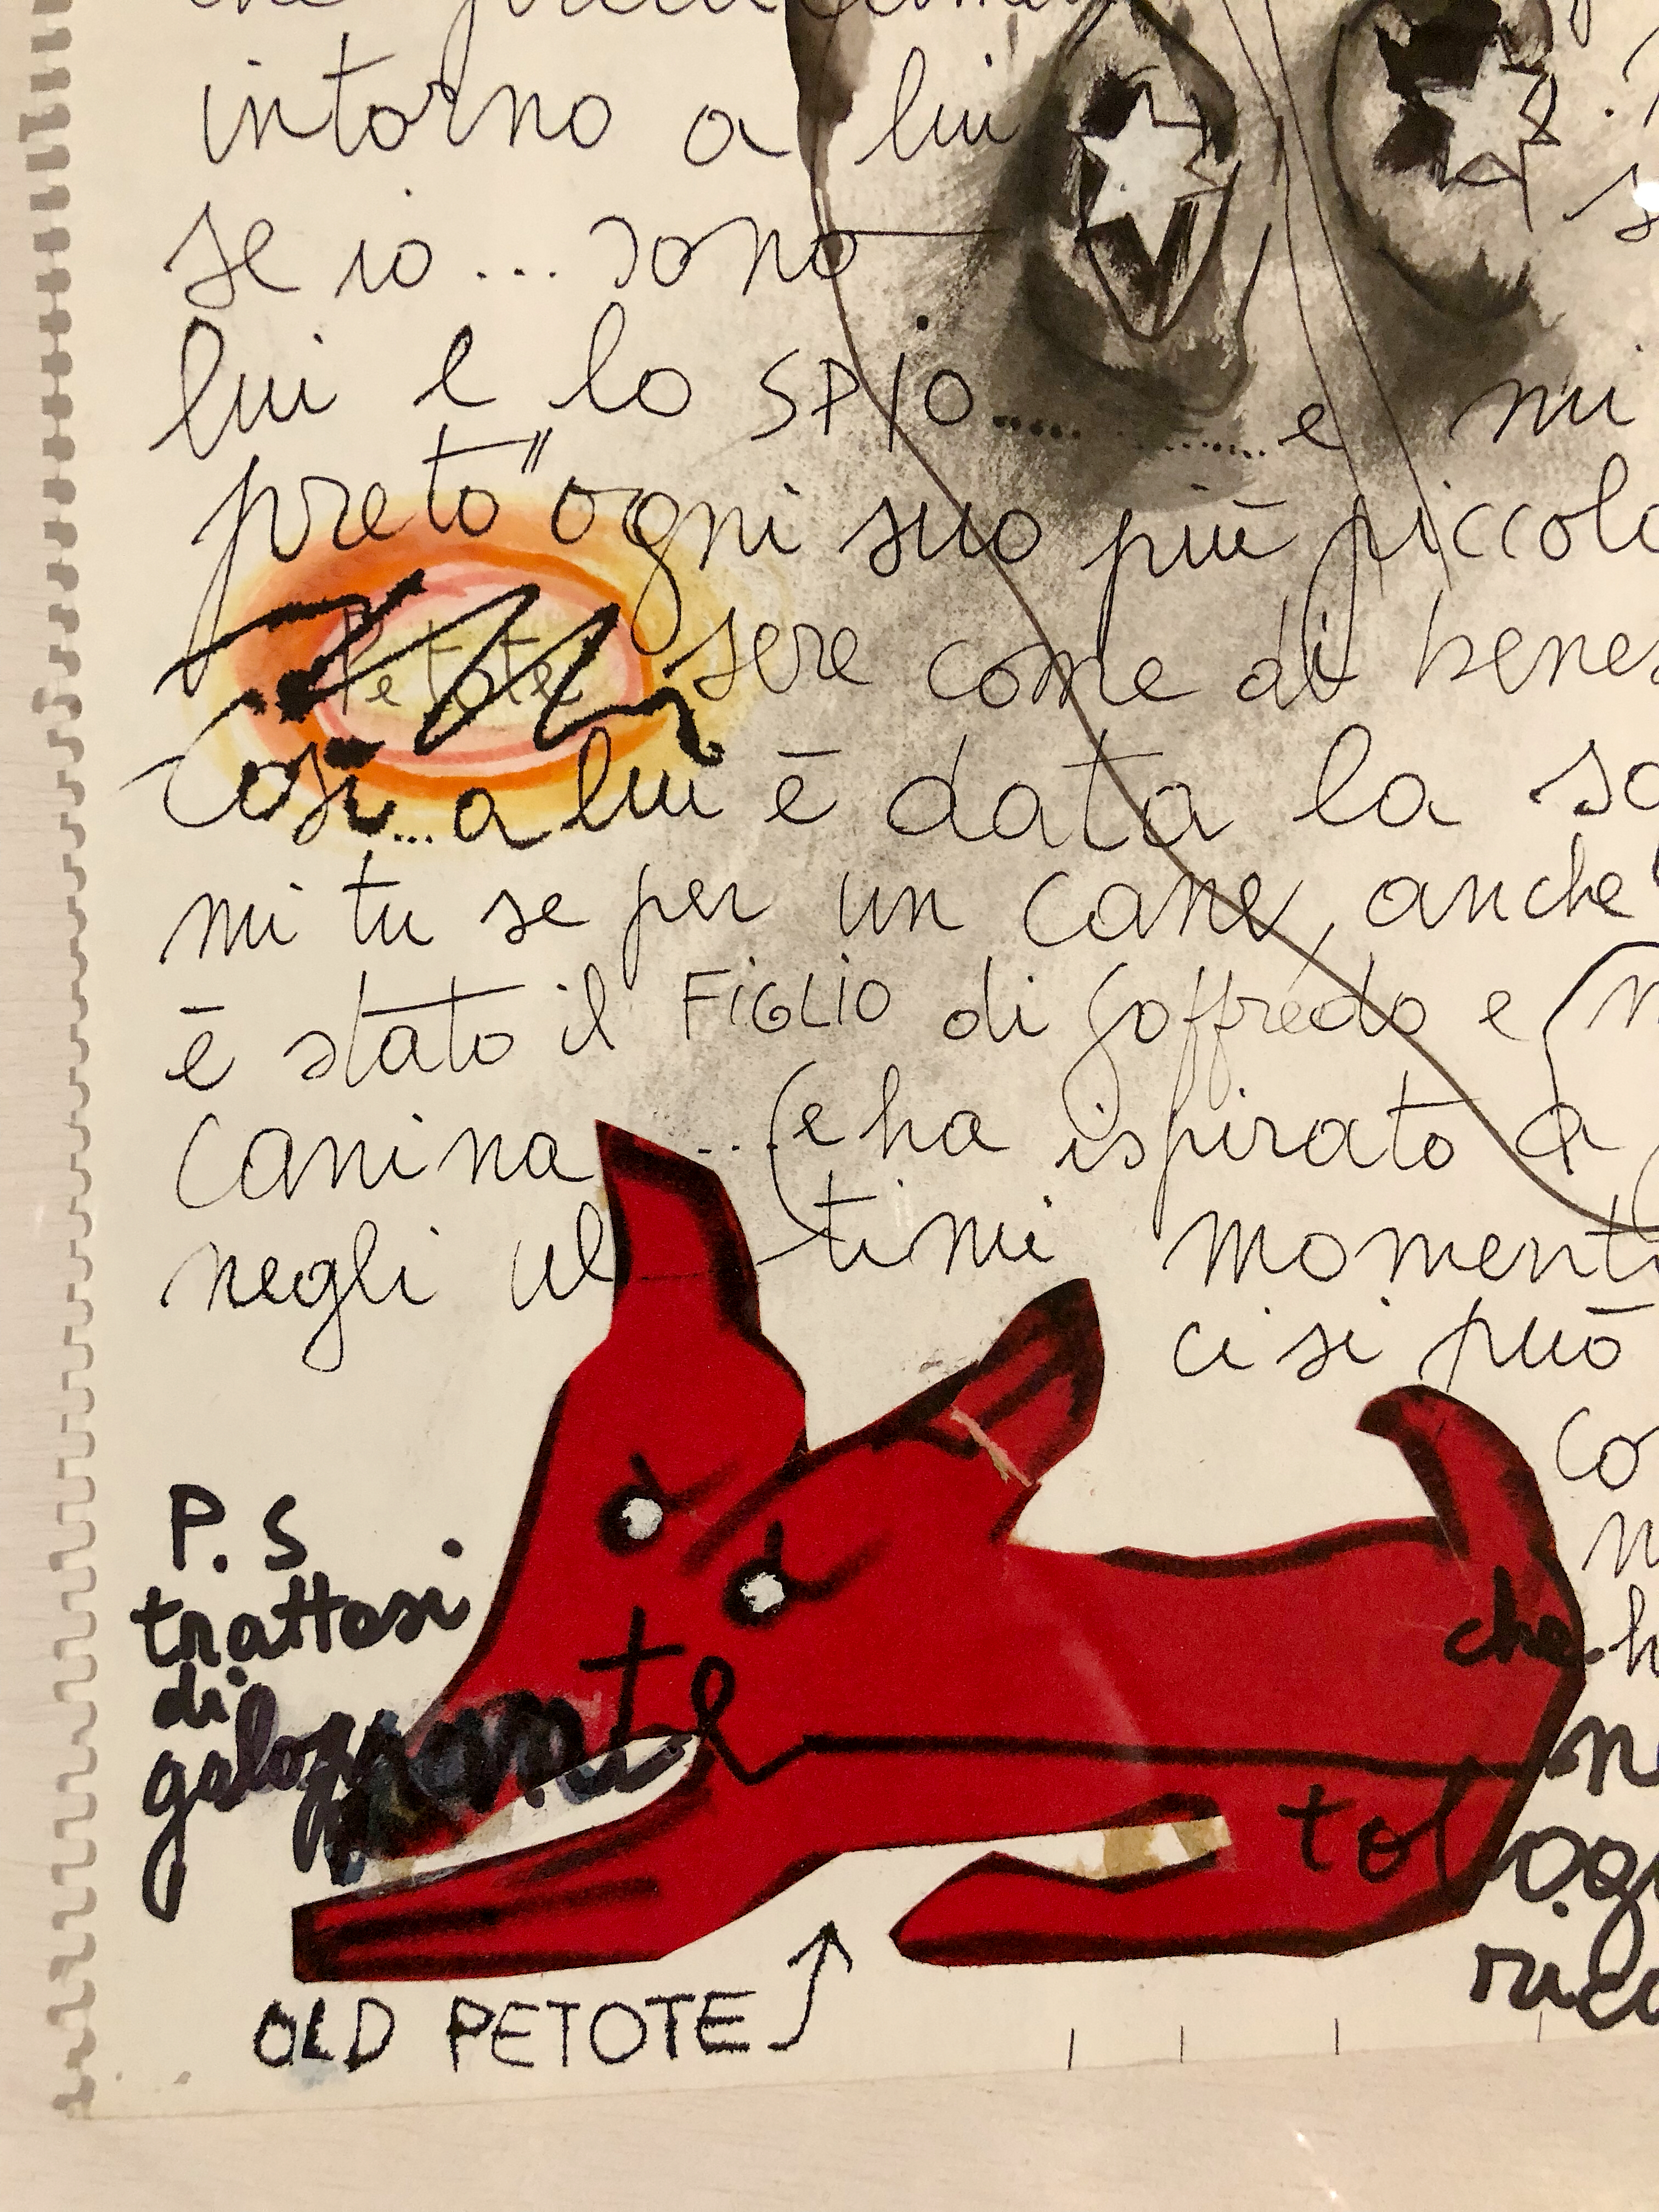 intorno a lui
se io ... sono
lui e lo SPIO ............ e mi
preto" ogni suo più piccolo
Petote sere come di benes
così ... a lui è data la so
mi tu se per un cane, anche
è stato il FIGLIO di Goffredo e
canina ... (e ha ispirato a
negli ul timi momenti
ci si può
co
P.S
trattasi
di
che h
te
tol
ric
OLD PETOTE